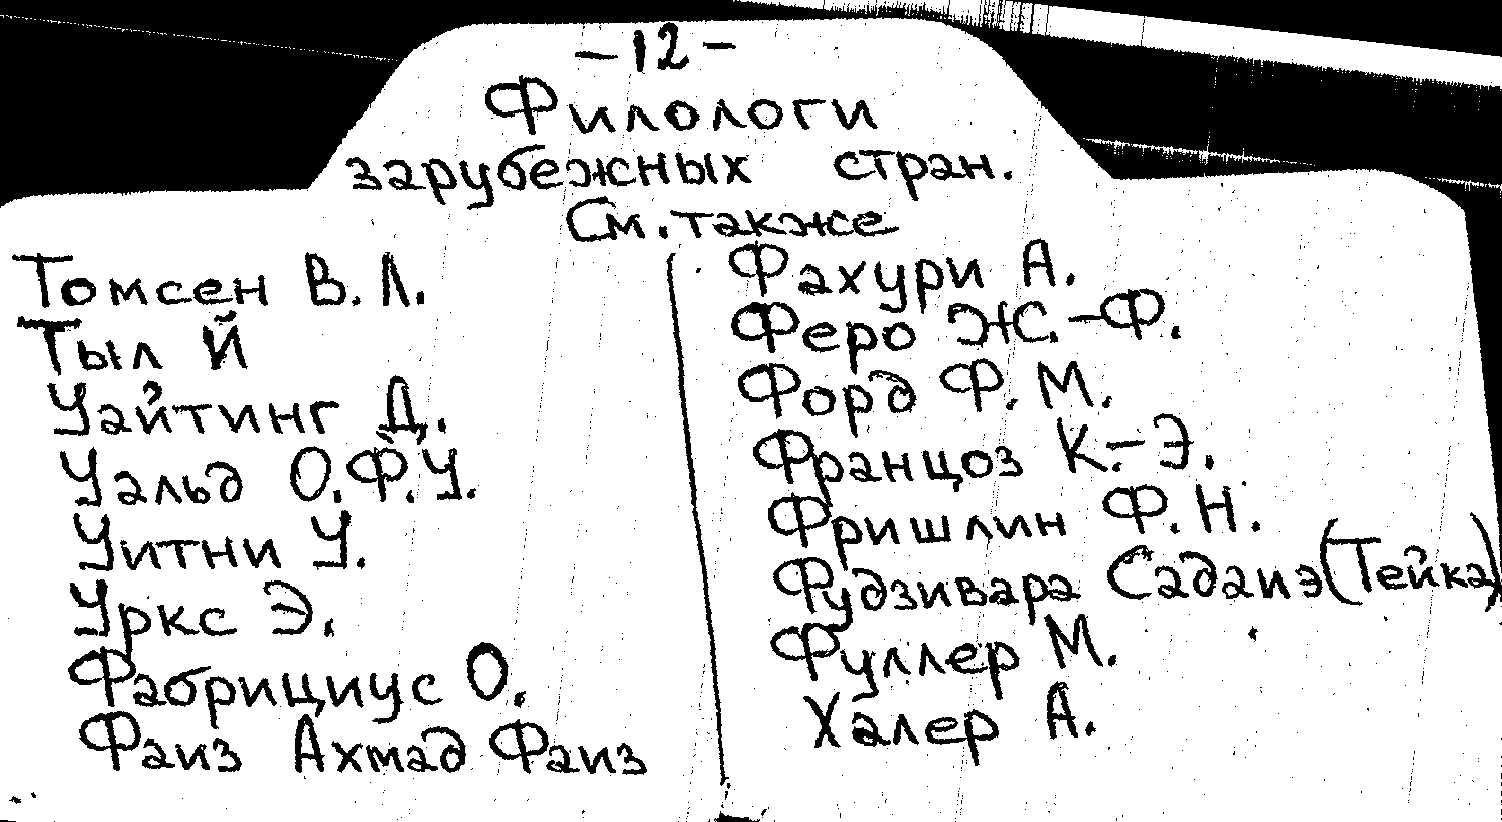 - 12 -
Филологи
зарубежных стран.
См. также
Томсен В. Л.
Тыл Й
Уайтинг Д.
Уальд О.Ф.У.
Уитни У.
Уркс Э.
Фабрициус О.
Фаиз Ахмад Фаиз
Фахури А.
Феро Ж.-Ф.
Форд Ф. М.
Францоз К.-Э.
Фришлин Ф. Н.
Фудзивара Садаиэ (Тейка)
Фуллер М.
Халер А.